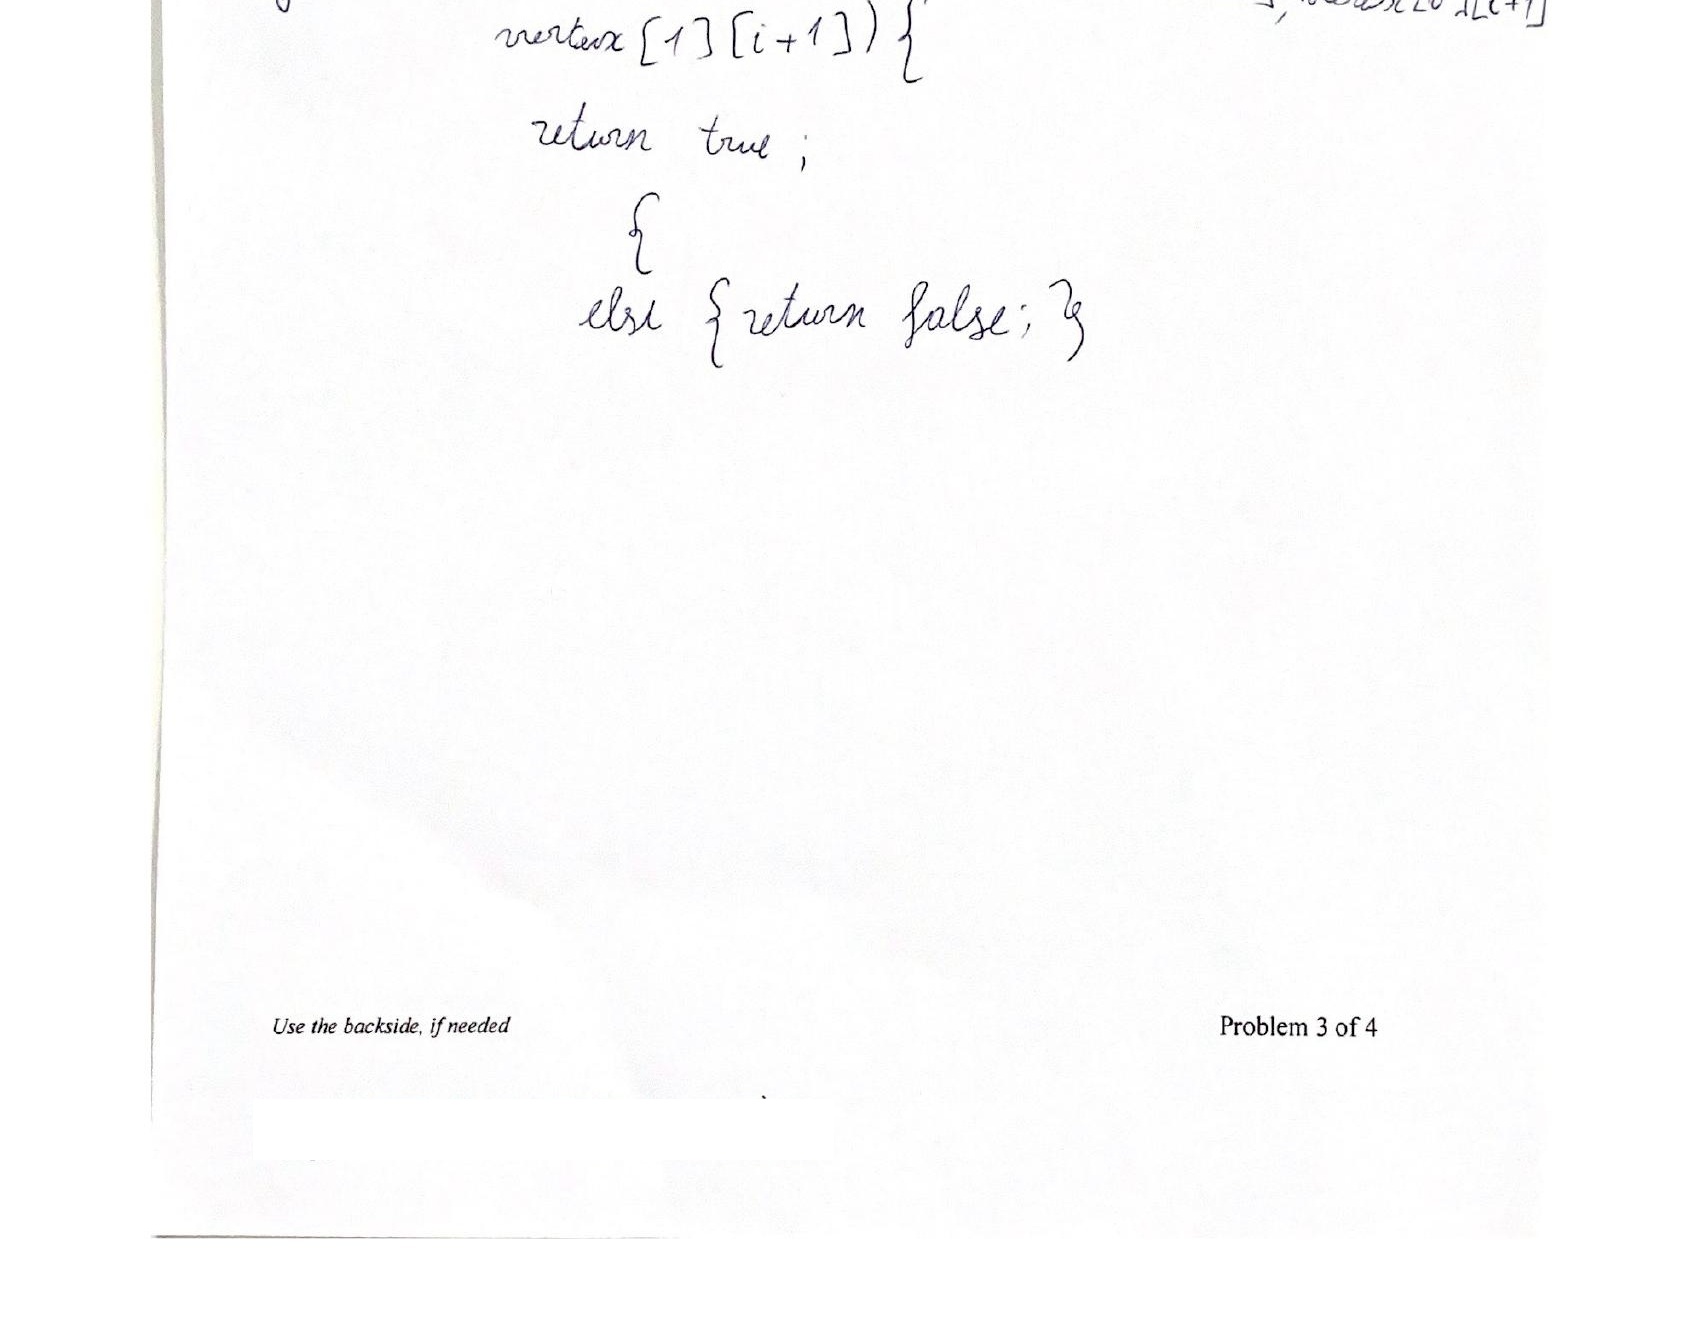 [i+1]
vertex [1] [i+1]) {
return true ;
{
else { return false; }
Use the backside, if needed
Problem 3 of 4